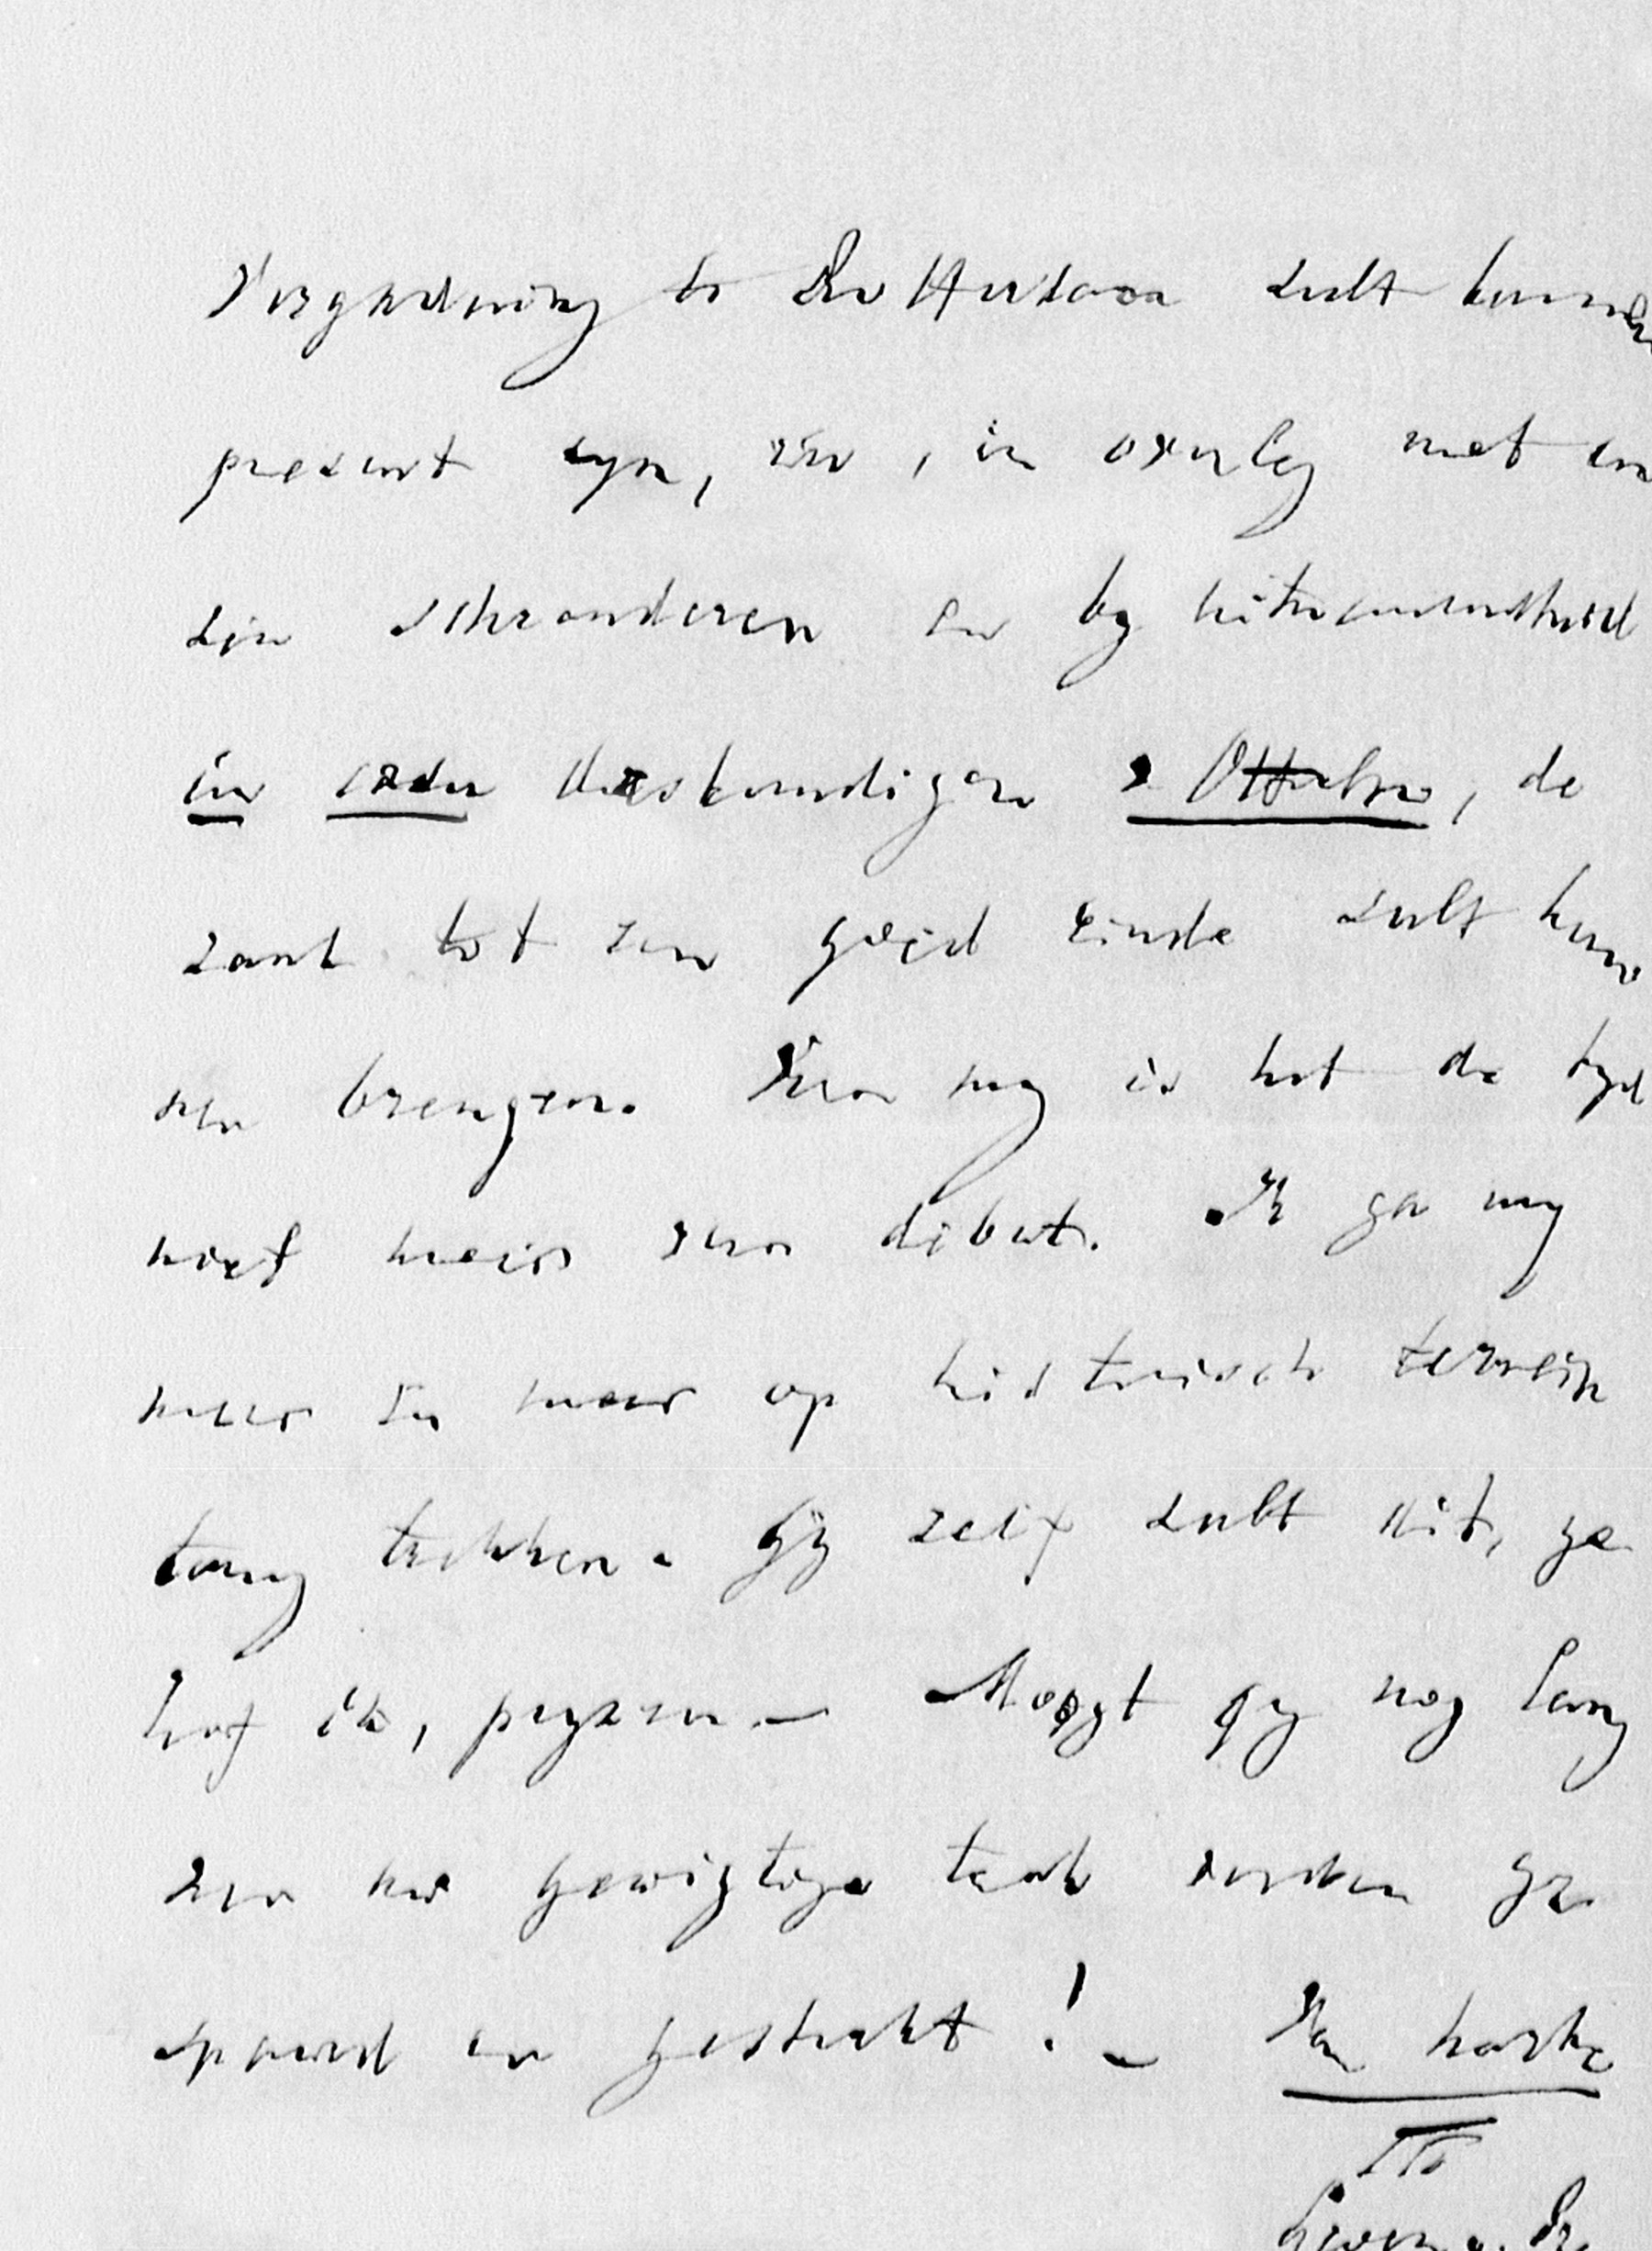 Vergadering te Rotterdam zult kunnen
present zyn, en, in overleg met en
den schranderen en by uitnemendheid
in deze deskundigen v Otterloo, de
zaak tot een goed einde zult kun
nen brengen. Voor my is het de tyd
niet meer van debat. Ik ga my
meer en meer op historisch terrein
terug trekken. Gy zelf zult dit, ge
loof ik, pryzen. Moogt gy nog lang
voor uw gewigtige taak worden ge
spaard en gesterkt! Van harte
Tt
Groen v. Pr